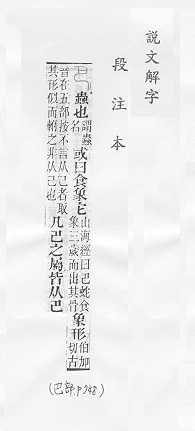 説文解字
段注本
蟲也謂蟲名或曰食象它山海經曰巴蛇食象三歲而出其骨象形伯加切古
音在五部按不言从己者取其形似而軵之非从己也凡巴之屬皆从巴
(巴部.P748)